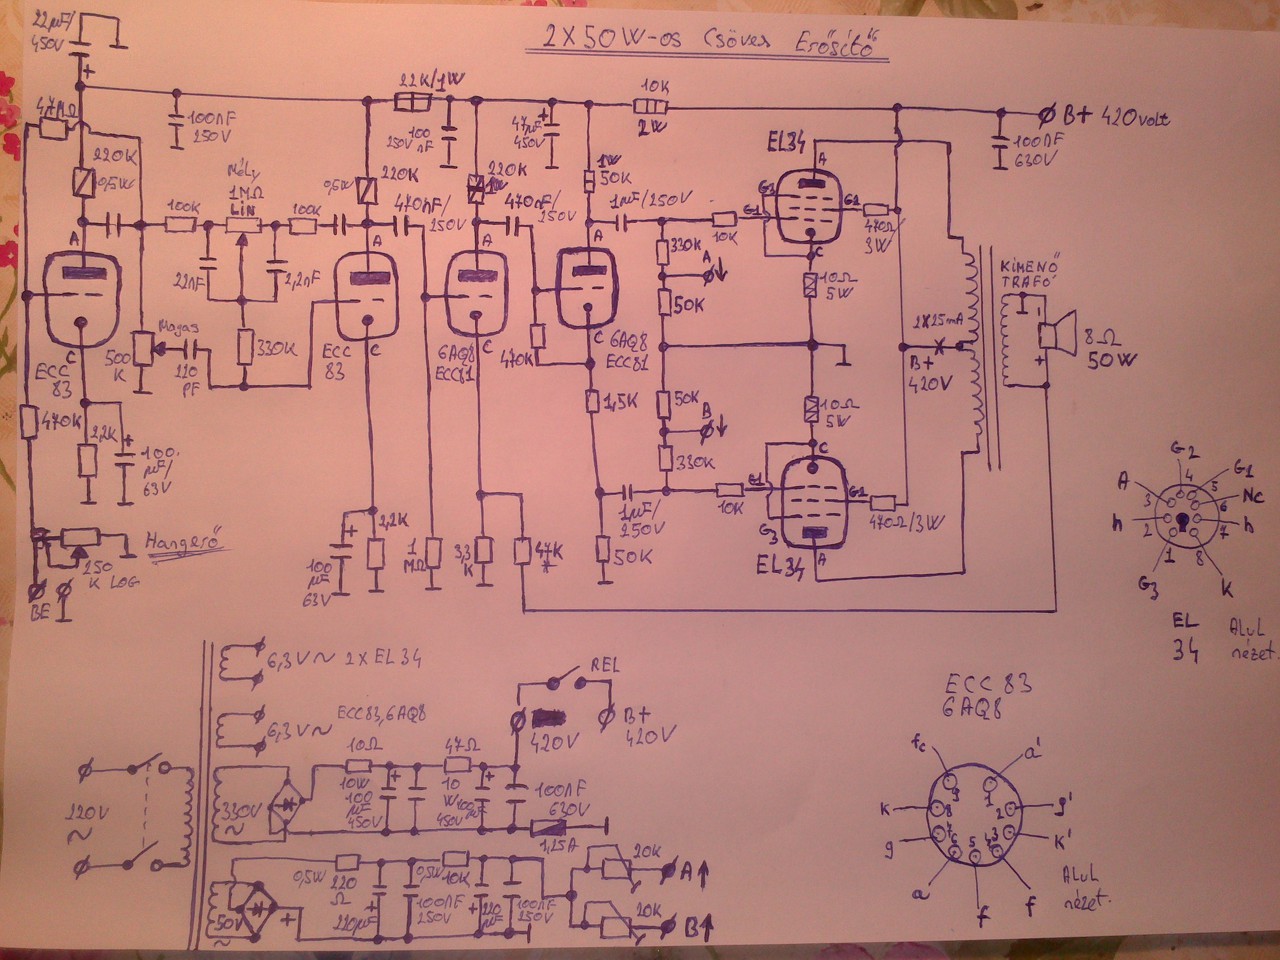 2X50W-os Csöves Erősítő
22µF/
450V
+
4,7MΩ
220K
0,5W
100nF
250V
22K/1W
100
nF
250V
47µF
450V
+
10K
2W
B+ 420volt
100nF
630V
Mély
1MΩ
LIN
100K
100K
22nF
2,2nF
0,5W
220K
470nF/
250V
220K
1W
470nF/
250V
1W
50K
1µF/250V
EL34
A
G3
G1
G2
10K
470Ω
3W
C
10Ω
5W
330K
A
50K
A
A
A
A
C
C
C
C
ECC
83
470K
500
K
Magas
110
PF
330K
ECC
83
6AQ8
ECC81
470K
6AQ8
ECC81
1,5K
2X25mA
B+
420V
KIMENŐ
TRAFÓ
8Ω
50W
+
50K
B
330K
10Ω
5W
C
G1
G2
G3
10K
470Ω/3W
A
EL34
2,2K
+
100
µF/
63V
Hangerő
250
K LOG
BE
+
100
µF
63V
2,2K
1
MΩ
3,3
K
47K
*
1µF/
250V
50K
G2
G1
A
Nc
h
h
G3
K
1
2
3
4
5
6
7
8
EL
34
Alul
nézet.
6,3V~ 2XEL34
6,3V~ ECC83,6AQ8
REL
420V
B+
420V
220V
~
330V
~
10Ω
10W
+
100
µF
450V
47Ω
10
W
+
100µF
450V
100nF
630V
1,25A
50V
~
+
0,5W
220
Ω
220µF
+
0,5W
10K
100nF
250V
220
µF
+
100nF
250V
20K
A
20K
B
ECC 83
6AQ8
fc
a'
K
g'
g
K'
a
f
f
1
2
3
4
5
6
7
8
9
Alul
nézet.